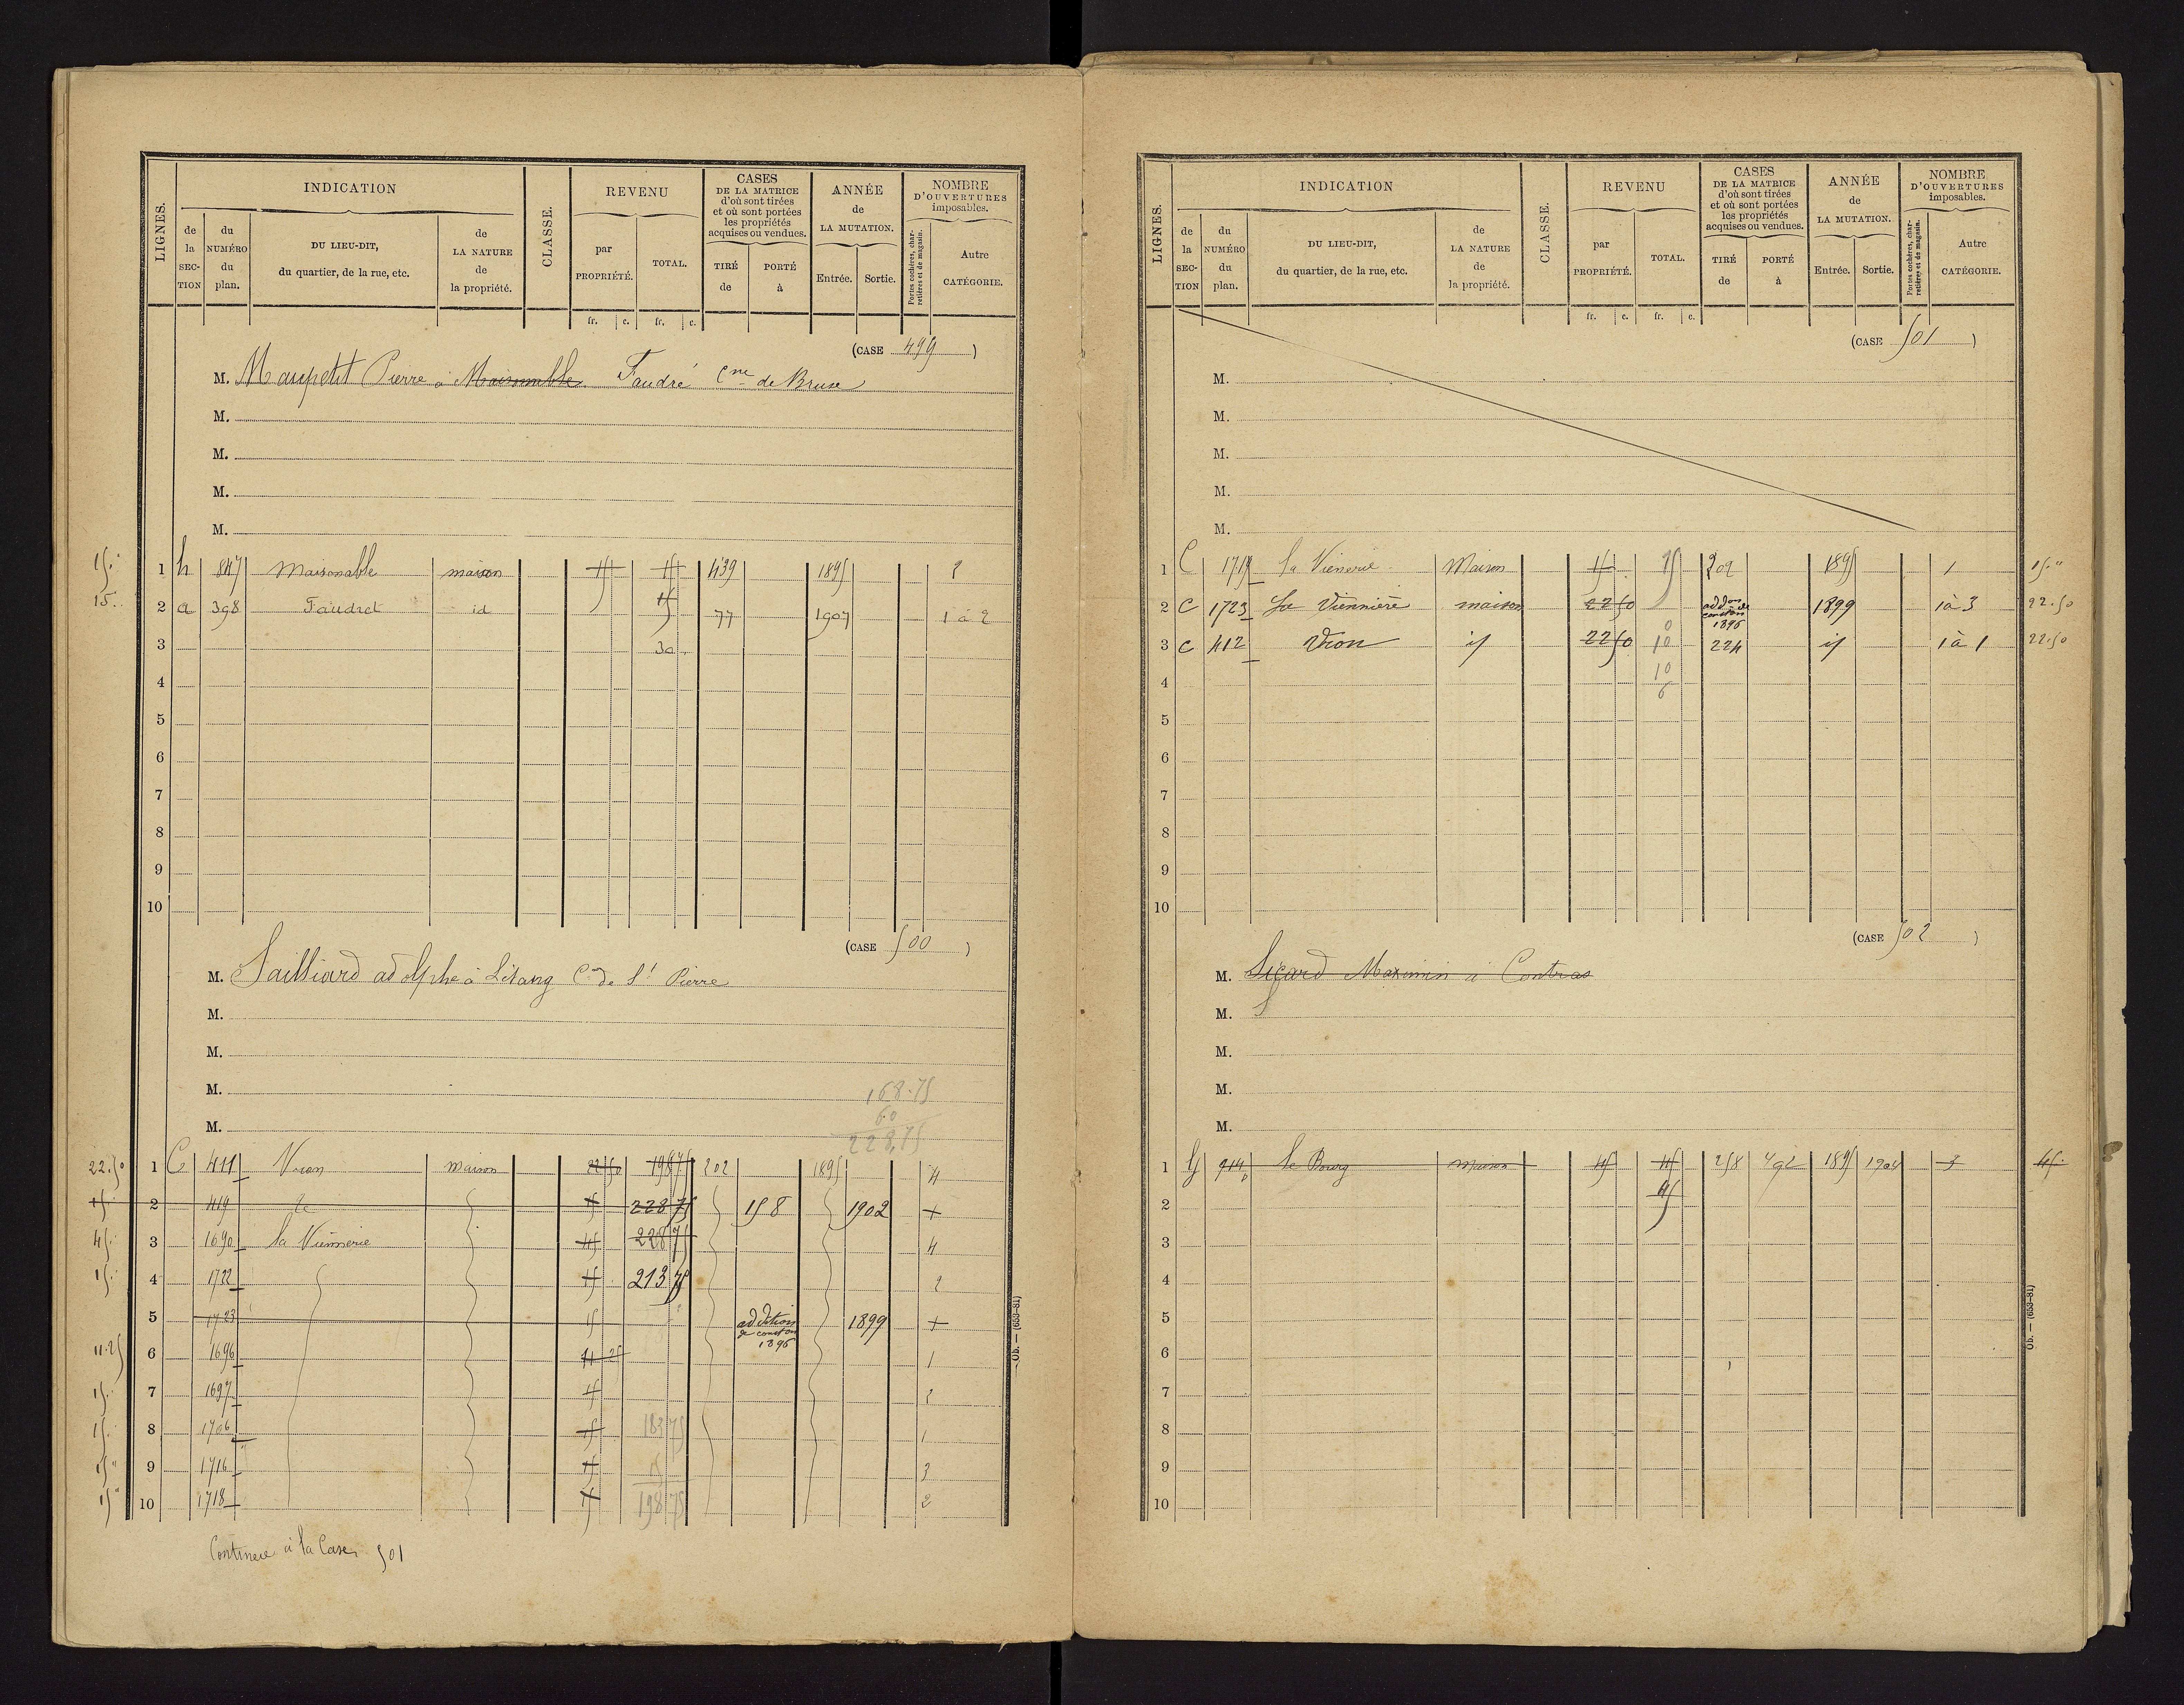 LIGNES. INDICATION CLASSE. REVENU CASES DE LA MATRICE d'où sont tirées et où sont portées les propriétés acquises ou vendues. ANNÉE de LA MUTATION. NOMBRE D'OUVERTURES imposables.
de la SECTION du NUMÉRO du plan. DU LIEU-DIT, du quartier, de la rue, etc. de LA NATURE de la propriété. par PROPRIÉTÉ. TOTAL. TIRÉ de PORTÉ à Entrée. Sortie. Portes cochères, charretières et de magasin. Autre CATÉGORIE.
fr. c. fr. c.
(CASE 499 )
M. Maupetit Pierre à Maisonable Faudré Cne de
M.
M.
M.
M.
15. 1 h 847 Maisonable maison 15 15 439 1895 2
15. 2 a 398 Faudret id 15 77 1907 1 à 2
3 30
4
5
6
7
8
9
10
(CASE 500 )
M. Sailliard adolphe à Létang Cne de St Pierre
M.
M.
M. 168.75
60
M. 228,75
22.50 1 C 411 Vron maison 22 50 198 75 202 1895 4
15 2 419 15 228 75 158 1902 +
45. 3 1690 la Viennerie 45 228 75 4
15. 4 1722 15 213 75 2
5 1723 15 addition de conston 1896 1899 +
11.25 6 1696 11 25 1
15. 7 1697 15 2
15. 8 1706 15 183 75 1
15 " 9 1716 15 15 3
15 " 10 1718 15 198 75 2
Continue à la Case 501
LIGNES. INDICATION CLASSE. REVENU CASES DE LA MATRICE d'où sont tirées et où sont portées les propriétés acquises ou vendues. ANNÉE de LA MUTATION. NOMBRE D'OUVERTURES imposables.
de la SECTION du NUMÉRO du plan. DU LIEU-DIT, du quartier, de la rue, etc. de LA NATURE de la propriété. par PROPRIÉTÉ. TOTAL. TIRÉ de PORTÉ à Entrée. Sortie. Portes cochères, charretières et de magasin. Autre CATÉGORIE.
fr. c. fr. c.
(CASE 501 )
M.
M.
M.
M.
M.
1 C 1719 la Vienerie Maison 15 15 202 1895 1 15."
2 C 1723 La Viennière maison 22 50 addon de conston 1896 1899 1 à 3 22.50
3 C 412 Vron id 22 50 10 224 id 1 à 1 22.50
4 10
6
5
6
7
8
9
10
(CASE 502 )
M. Sicard Maximin à Contras
M. S
M.
M.
M.
1 G 914 le Bourg maison 45 45 258 492 1895 1904 3 45.
2 45
3
4
5
6
7
8
9
10
Ob. — (653-81)
Ob. — (653-81)